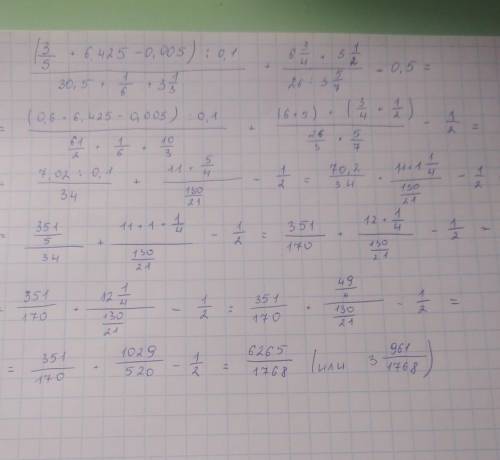 (3/5 + 6,425 - 0,005) : 0,1 / 30,5 + 1/6 + 3 1/3 + 6 3/4 + 5 1/2 / 26 : 3 5/7 - 0,5 =
= (0,6 + 6,425 - 0,005) : 0,1 / 61/2 + 1/6 + 10/3 + (6+5) + (3/4 + 1/2) / 26/3 * 5/7 - 1/2 =
= 7,02 : 0,1 / 34 + 11 + 5/4 / 130/21 - 1/2 = 70,2 / 34 + 11+1 1/4 / 130/21 - 1/2
= 351/5 / 34 + 11 + 1 + 1/4 / 130/21 - 1/2 = 351/170 + 12 + 1/4 / 130/21 - 1/2 =
= 351/170 + 12 1/4 / 130/21 - 1/2 = 351/170 + 49/4 / 130/21 - 1/2 =
= 351/170 + 1029/520 - 1/2 = 6265/1768 (или 3 961/1768)